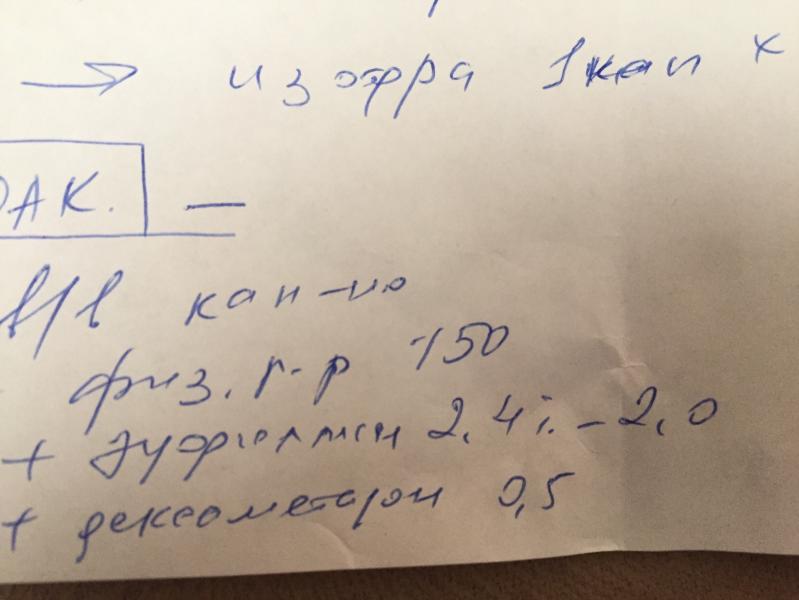 → изофра 1 кап ×
ОАК. —
в/в кап-но
физ. р-р 150
+ эуфиллин 2,4% - 2,0
+ дексаметазон 0,5